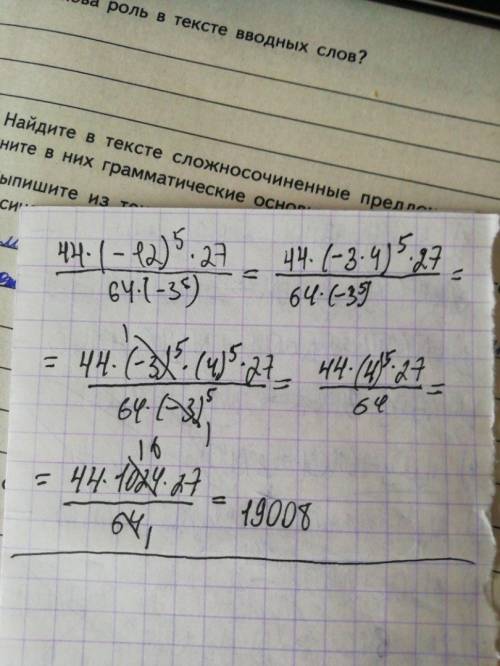 ова роль в тексте вводных слов?
Найдите в тексте сложносочинённые
ните в них грамматические
ыпишите из
44·(-12)^5·27 / 64·(-3^5) = 44·(-3·4)^5·27 / 64·(-3^5) =
= 44·(-3)^5·(4)^5·27 / 64·(-3)^5 = 44·(4)^5·27 / 64 =
= 44·1024·27 / 64 = 19008